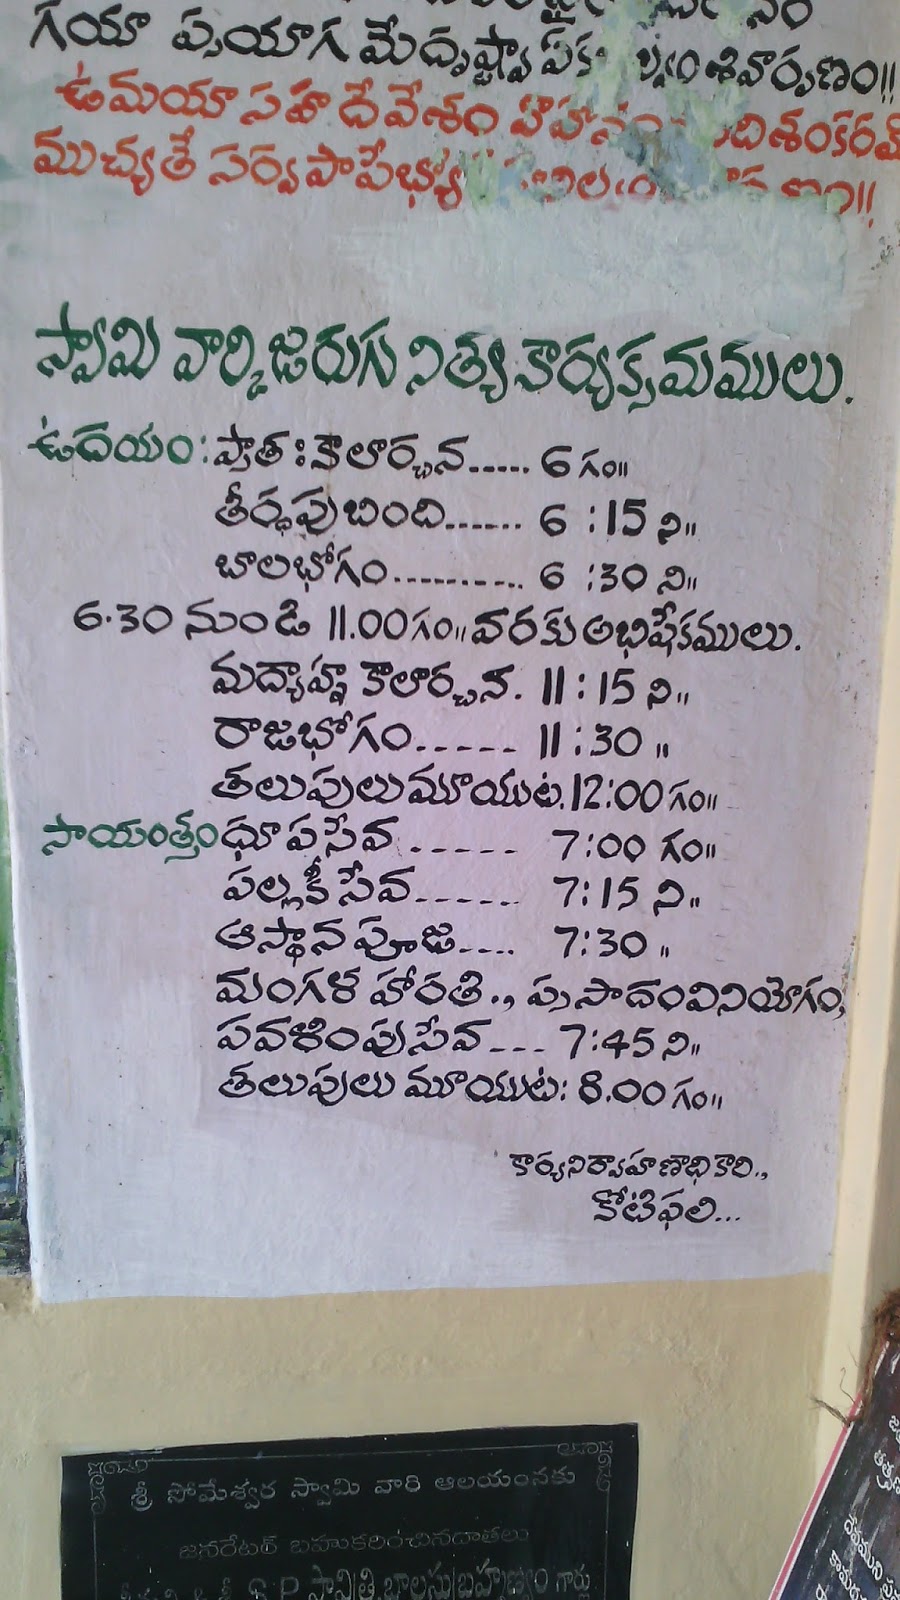 గయా ప్రయాగ మేదృష్ట్వా ఏక శివార్పణం॥
ఉమయా సహ దేవేశం శంకరమ్
ముచ్యతే సర్వపాపేభ్యో
స్వామి వార్కి జరుగు నిత్య కార్యక్రమములు.
ఉదయం: ప్రాతఃకాలార్చన..... 6 గం॥
తీర్థపు బింది...... 6 :15 ని॥
బాలభోగం........... 6 :30 ని॥
6.30 నుండి 11.00 గం॥ వరకు అభిషేకములు.
మద్యాహ్న కాలార్చన. 11 : 15 ని॥
రాజభోగం..... 11 : 30 ॥
తలుపులు మూయుట. 12:00 గం॥
సాయంత్రం ధూపసేవ ...... 7:00 గం॥
పల్లకీ సేవ...... 7:15 ని॥
ఆస్థాన పూజ.... 7:30 ॥
మంగళ హారతి., ప్రసాదం వినియోగం,
పవళింపు సేవ... 7:45 ని॥
తలుపులు మూయుట: 8.00 గం॥
కార్యనిర్వాహణాధికారి.,
కోటిఫలి...
శ్రీ సోమేశ్వర స్వామి వారి ఆలయంనకు
జనరేటర్ బహుకరించినదాతలు
S.P. సావిత్రి, బాలసుబ్రహ్మణ్యం గార్లు